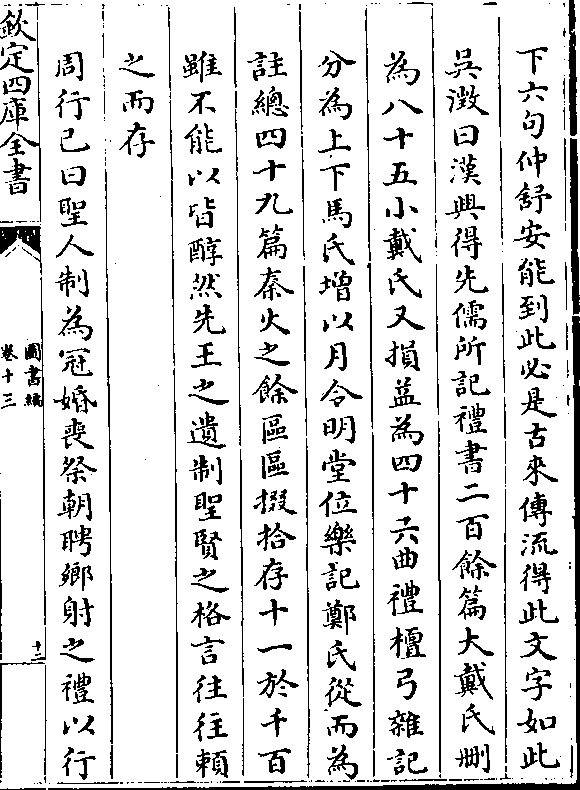 下六句仲舒安能到此必是古來傳流得此文字如此
吳澂曰漢興得先儒所記禮書二百餘篇大戴氏刪
為八十五小戴氏又損益為四十六曲禮檀弓雜記
分為上下馬氏增以月令明堂位樂記鄭氏從而為
註總四十九篇秦火之餘區區掇拾存十一於千百
雖不能以皆醇然先王之遺制聖賢之格言往往頼
之而存
周行已曰聖人制為冠婚喪祭朝聘鄉射之禮以行
欽定四庫全書
圖書編
卷十三
十二